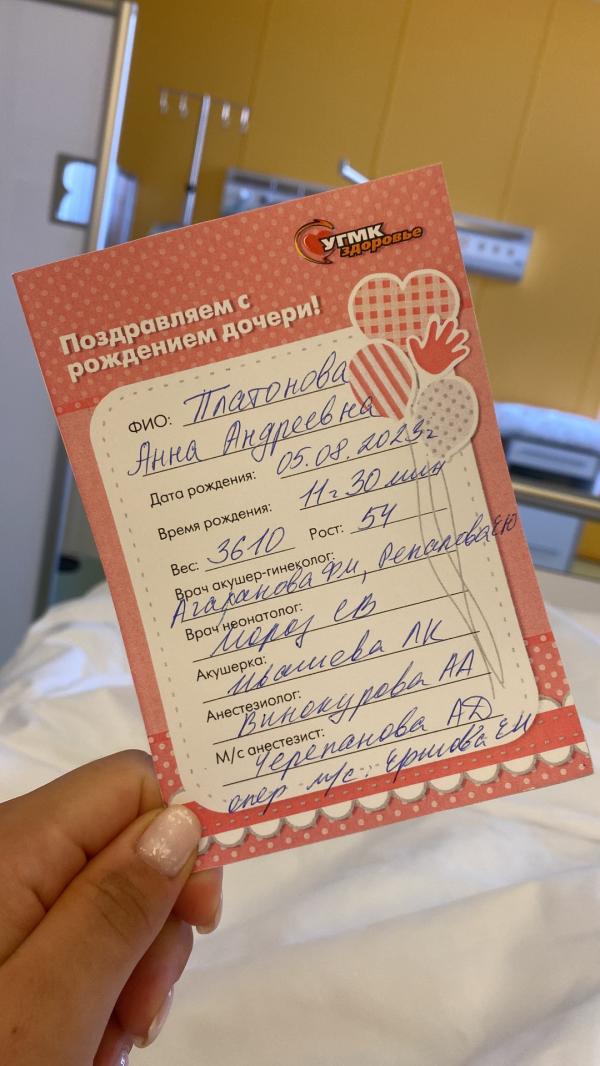 УГМК
здоровье
Поздравляем с
рождением дочери!
ФИО: Платонова
Анна Андреевна
Дата рождения: 05.08.2023г
Время рождения: 11ч 30 мин
Вес: 3610 Рост: 54
Врач акушер-гинеколог:
Агаранова Ф.М, Репалова ЕЮ
Врач неонатолог:
Мороз СВ
Акушерка:
Ивашева ЛК
Анестезиолог:
Винокурова АА
М/с анестезист:
Черепанова АД
опер м/с: Ершова ЕН